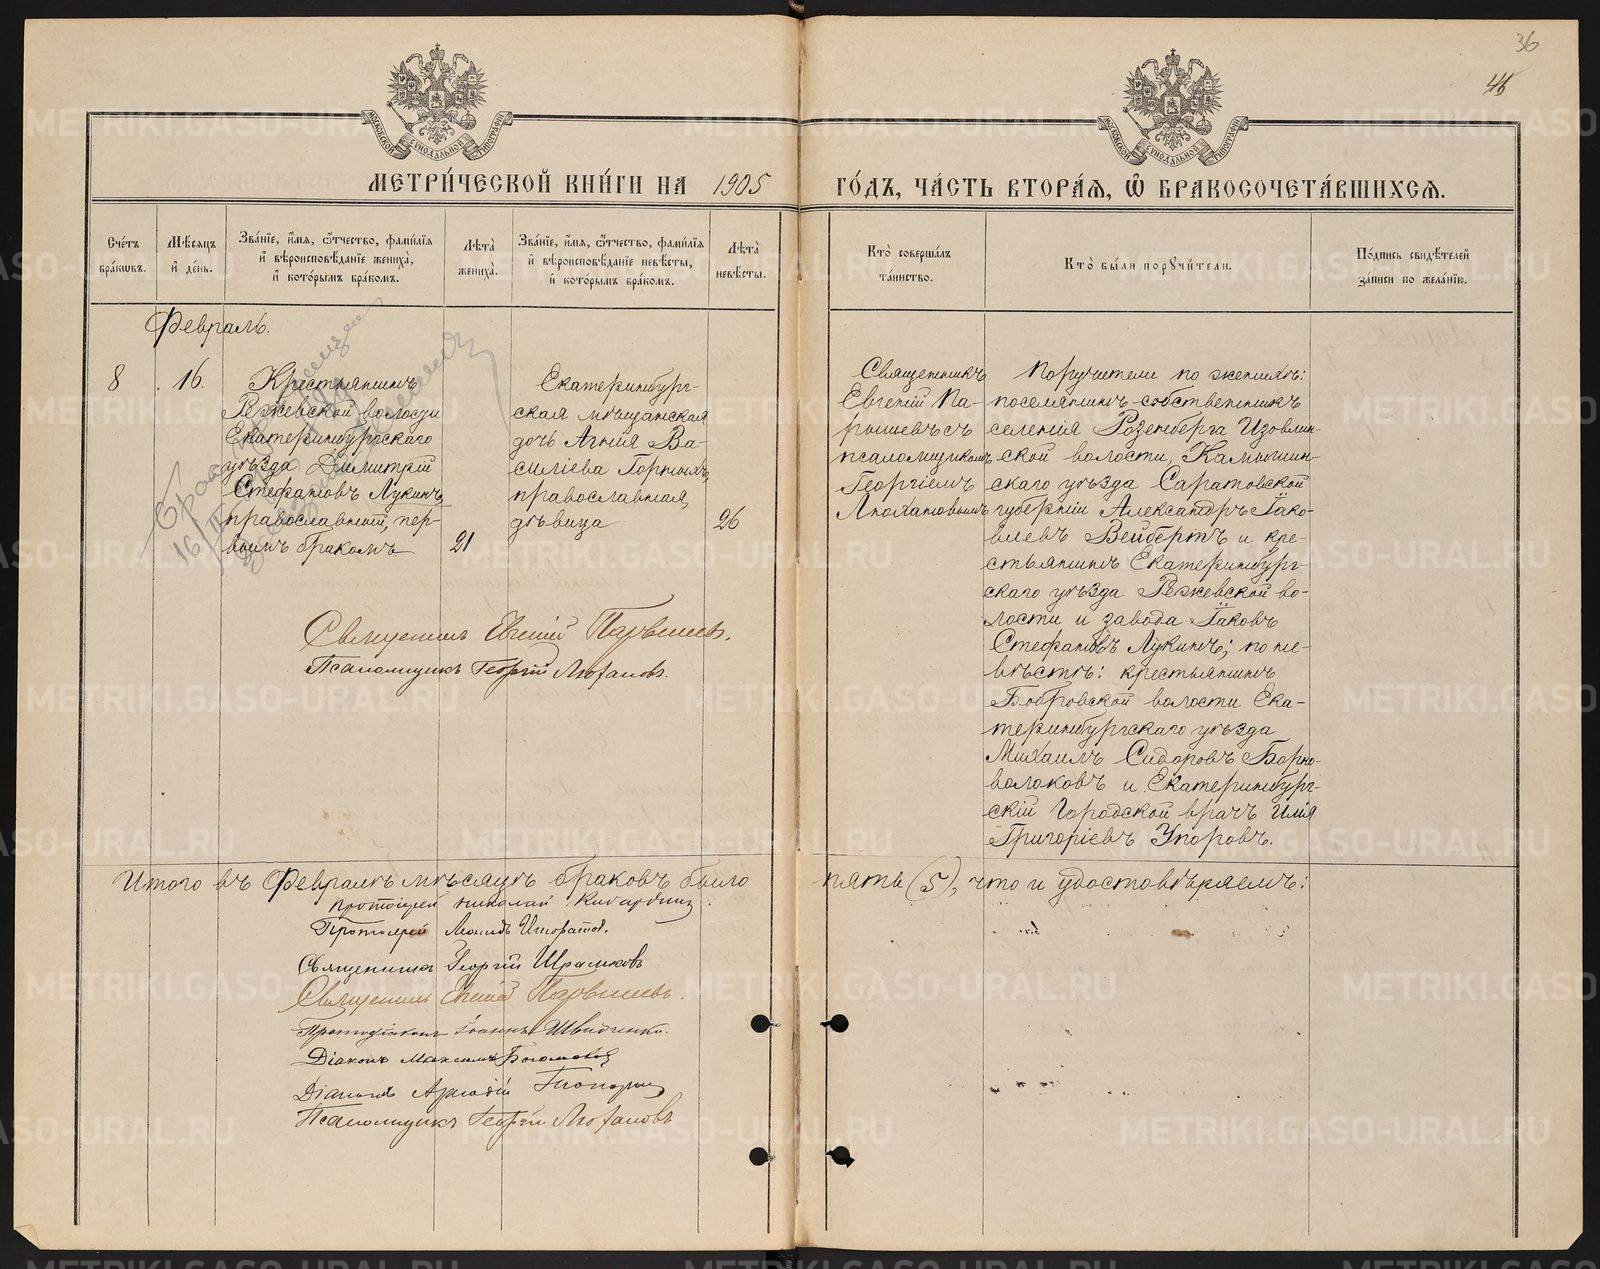 36
46
МЕТРИ́ЧЕСКОЙ КНИ́ГИ НА 1905 ГО́ДЪ, ЧА́СТЬ ВТОРА́Я, Ѽ БРАКОСОЧЕТА́ВШИХСЯ.
Сче́тъ бра́ковъ.
Мѣ́сяцъ и҆ де́нь.
Зва́нїе, и҆́мя, ѻ҆́тчество, фами́лїя и҆ вѣроисповѣ́данїе жениха̀, и҆ кото́рымъ бра́комъ.
Лѣ́та жениха̀.
Зва́нїе, и҆́мя, ѻ҆́тчество, фами́лїя и҆ вѣроисповѣ́данїе невѣ́сты, и҆ кото́рымъ бра́комъ.
Лѣ́та невѣ́сты.
Кто̀ соверша́лъ та́инство.
Кто̀ бы́ли порꙋчи́тели.
По́дпись свидѣ́телей за́писи по жела́нїю.
Февраль.
8
16.
Крестьянинъ
Режевской волости
Екатеринбургскаго
уѣзда Димитрій
Стефановъ Лукинъ,
православный, пер-
вымъ бракомъ
21
Екатеринбург-
ская мѣщанская
дочь Агнія Ва-
силіева Горныхъ,
православная,
дѣвица
26
Священникъ
Евгеній Па-
рышевъ съ
псаломщикомъ
Георгіемъ
Люхановымъ
Поручители по женихѣ:
поселянинъ-собственникъ
селенія Розенберга Иловлин-
ской волости, Камышин-
скаго уѣзда Саратовской
губерніи Александръ Іако-
влевъ Вейбертъ и кре-
стьянинъ Екатеринбург-
скаго уѣзда Режевской во-
лости и завода Іаковъ
Стефановъ Лукинъ; по не-
вѣстѣ: крестьянинъ
Бобровской волости Ека-
теринбургскаго уѣзда
Михаилъ Сидоровъ Борно-
волоковъ и Екатеринбург-
скій Городской врачъ Илія
Григоріевъ Упоровъ.
Священникъ Евгеній Парышевъ.
Псаломщикъ Георгій Люхановъ.
Итого въ Февралѣ мѣсяцѣ браковъ было пять (5), что и удостовѣряемъ:
Протоіерей Николай
Протоіерей
Священникъ Георгій
Священникъ Евгеній Парышевъ.
Протодіаконъ Іоаннъ
Діаконъ Максимъ
Діаконъ Аркадій
Псаломщикъ Георгій Люхановъ
METRIKI.GASO-URAL.RU